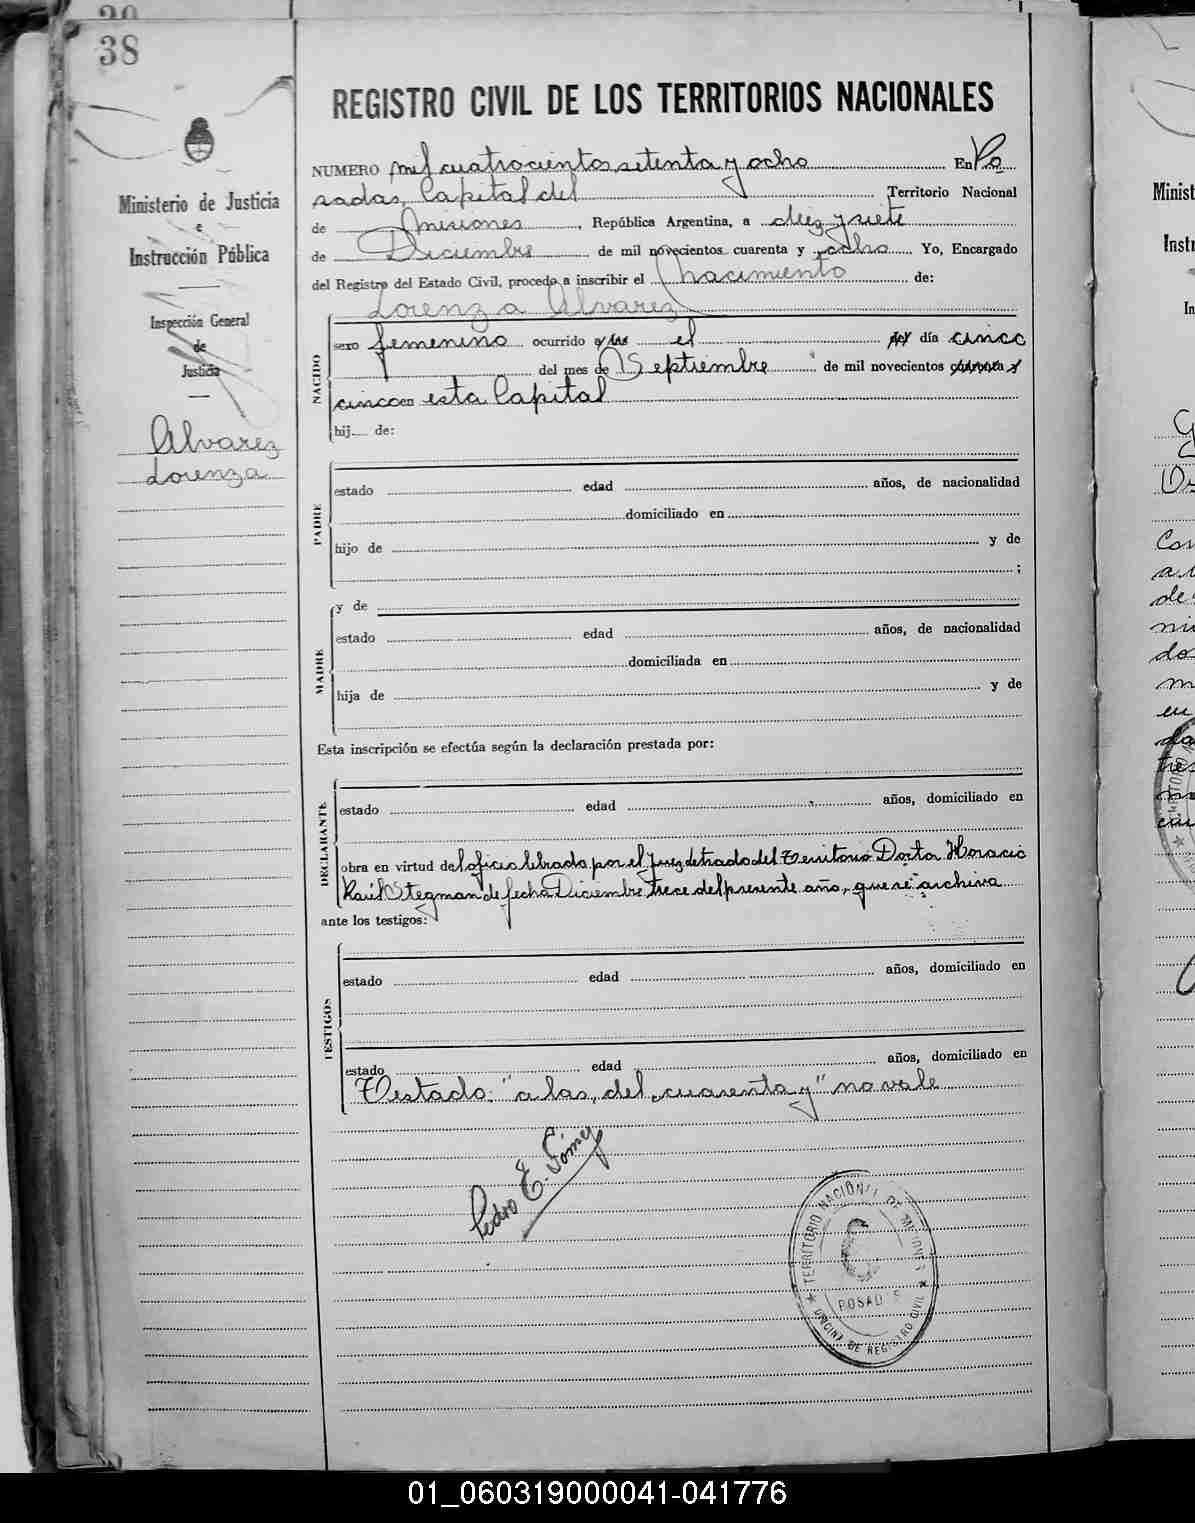 38
REGISTRO CIVIL DE LOS TERRITORIOS NACIONALES
Ministerio de Justicia
e
Instrucción Pública
Inspección General
de
Justicia
Alvarez
Lorenza
NUMERO mil cuatrocientos setenta y ocho En Po
sadas, Capital del Territorio Nacional
de Misiones, República Argentina, a diez y siete
de Diciembre de mil novecientos cuarenta y ocho Yo, Encargado
del Registro del Estado Civil, procedo a inscribir el nacimiento de:
Lorenza Alvarez
NACIDO
sexo femenino ocurrido a las el del día cinco
del mes de Septiembre de mil novecientos cuarenta y
cinco en esta Capital
hij de:
PADRE
estado edad años, de nacionalidad
domiciliado en
hijo de y de
;
y de
MADRE
estado edad años, de nacionalidad
domiciliada en
hija de y de
Esta inscripción se efectúa según la declaración prestada por:
DECLARANTE
estado edad años, domiciliado en
obra en virtud del oficio librado por el Juez letrado del Territorio Doctor Horacio
Raúl Stegman de fecha Diciembre trece del presente año, que se archiva
ante los testigos:
TESTIGOS
estado edad años, domiciliado en
estado edad años, domiciliado en
Testado: "a las, del, cuarenta y" no vale
Pedro E. Gómez
TERRITORIO NACIONAL DE MISIONES
POSADAS
OFICINA DE REGISTRO CIVIL
Minist
Instr
In
01_060319000041-041776